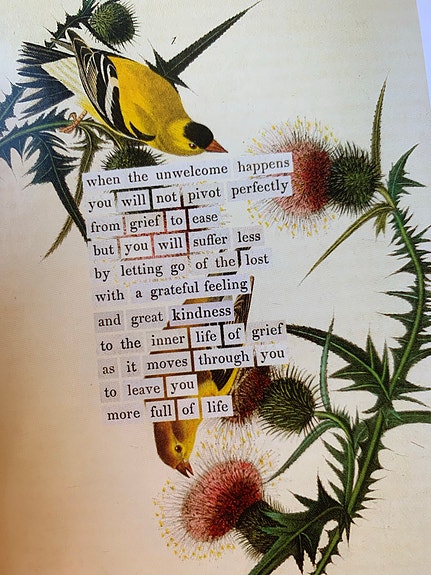 when the unwelcome happens
you will not pivot perfectly
from grief to ease
but you will suffer less
by letting go of the lost
with a grateful feeling
and great kindness
to the inner life of grief
as it moves through you
to leave you
more full of life